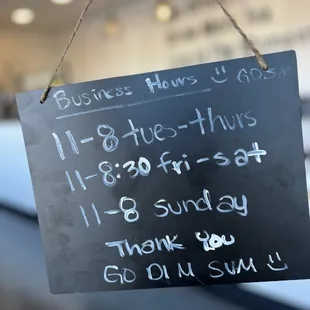 Business Hours :)
11-8 tues-thurs
11-8:30 fri-sat
11-8 sunday
Thank You
GO DIM SUM :)